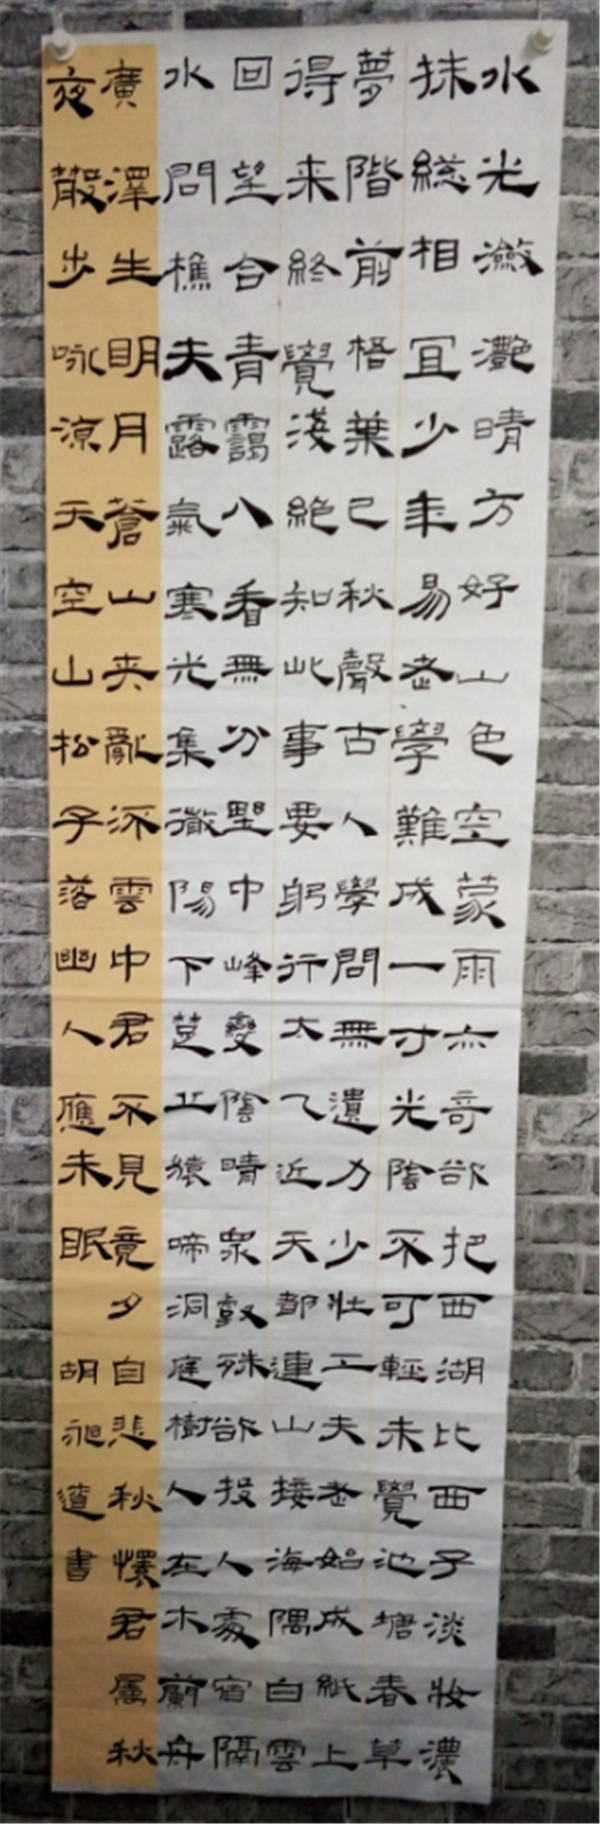 水光瀲灔晴方好山色空蒙雨亦奇欲把西湖比西子淡妝濃
抹總相宜少年易老學難成一寸光陰不可輕未覺池塘春草
夢階前梧葉已秋聲古人學問無遺力少壯工夫老始成紙上
得来終覺淺絕知此事要躬行太乙近天都連山接海隅白雲
回望合青靄入看無分野中峰變陰晴眾壑殊欲投人處宿隔
水問樵夫露氣寒光集微陽下楚丘猿啼洞庭樹人在木蘭舟
廣澤生明月蒼山夾亂流雲中君不見竟夕自悲秋懷君屬秋
夜散步咏涼天空山松子落幽人應未眠 胡 書